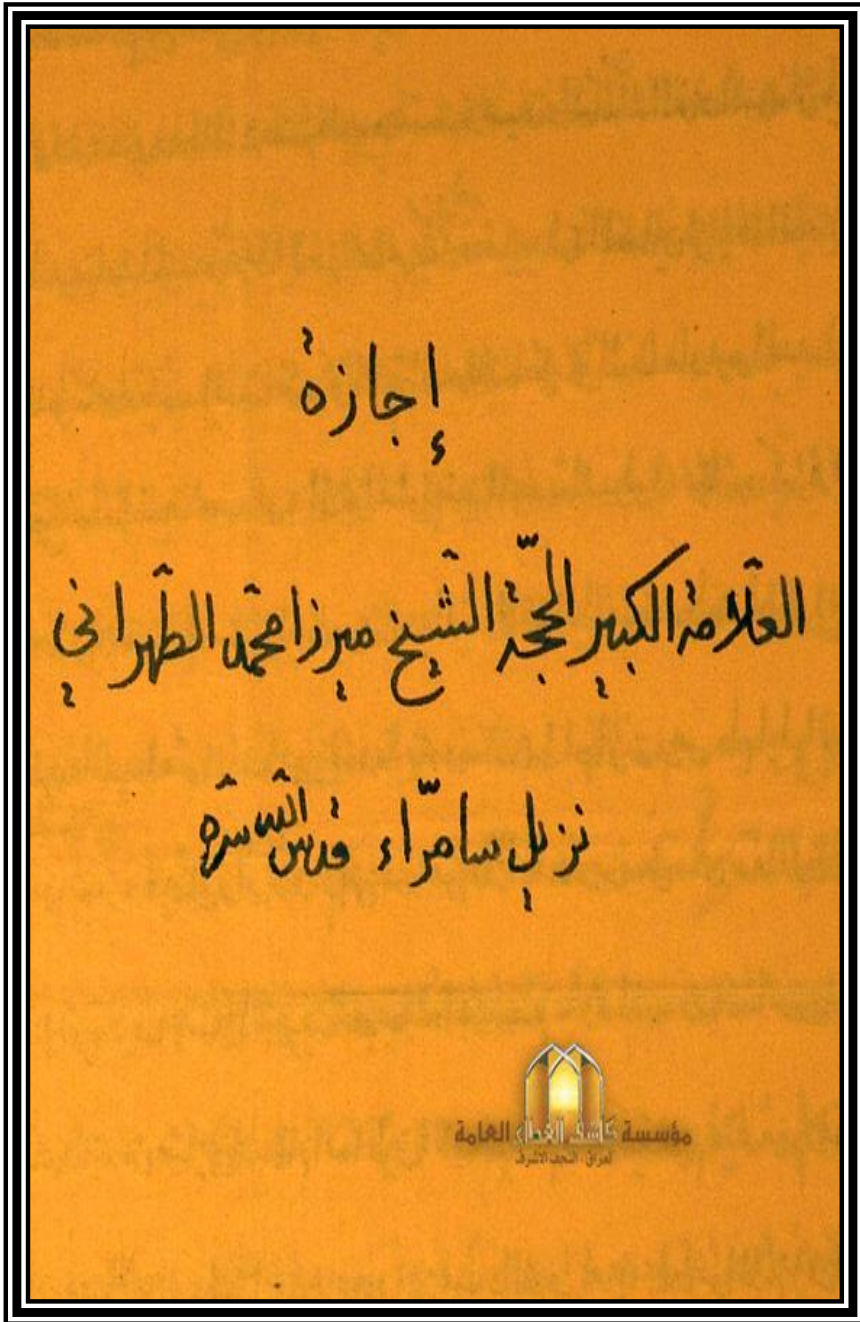 إجازة
العلّامة الكبير الحجّة الشّيخ ميرزا محمّد الطّهراني
نزيل سامرّاء قدّس اللّه سرّه
مؤسسة كاشف الغطاء العامة
العراق - النجف الاشرف